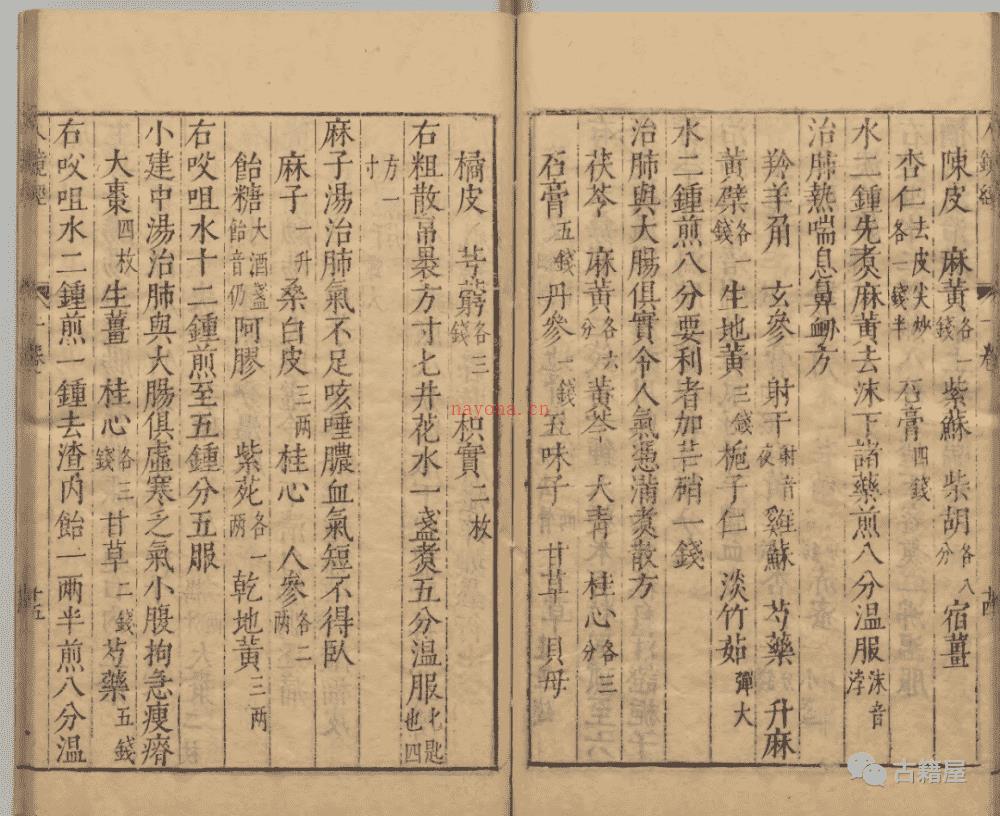 陳皮 麻黃各一錢 紫蘇 柴胡各八分 宿薑
杏仁去皮尖炒各一錢半 石膏四錢
水二鍾先煑麻黃去沫下諸藥煎八分溫服沫音浡
治肺熱喘息鼻衄方
羚羊角 玄參 射干射音夜 雞蘇 芍藥 升麻
黃蘗各一錢 生地黃三錢 梔子仁 淡竹茹彈大
水二鍾煎八分要利者加芒硝一錢
治肺與大腸俱實令人氣憑滿煑散方
茯苓 麻黃各六分 黃芩 大青 桂心各三分
石膏五錢 丹參一錢 五味子 甘草 貝母
橘皮 芎藭各三錢 枳實二枚
右粗散帛裹方寸七井花水一盞煑五分溫服七匙也四
方一寸
麻子湯治肺氣不足咳唾膿血氣短不得臥
麻子一升 桑白皮三兩 桂心 人參各二兩
飴糖大酒盞飴音仍 阿膠 紫菀各一兩 乾地黃三兩
右㕮咀水十二鍾煎至五鍾分五服
小建中湯治肺與大腸俱虛寒乏氣小腹拘急瘦瘠
大棗四枚 生薑 桂心各三錢 甘草二錢 芍藥五錢
右㕮咀水二鍾煎一鍾去渣內飴一兩半煎八分溫
十五
nayona.cn
古籍屋